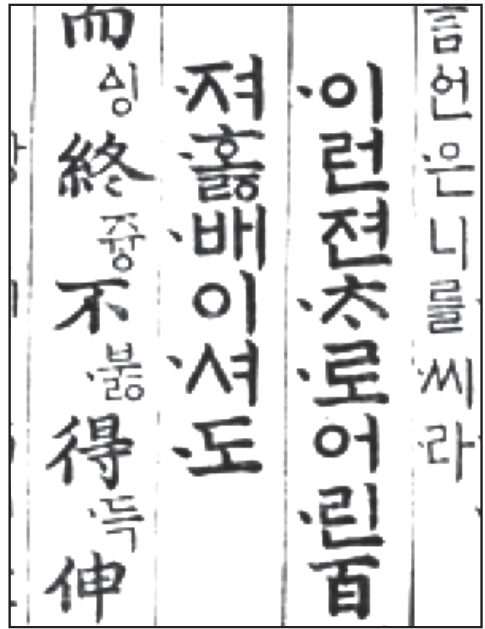 言언·은니를·씨라
·이런젼·ᄎᆞ·로어·린百
·져·홇·배이·셔·도
而ᅀᅵᆼ終즁不·부ᇙ得·득伸